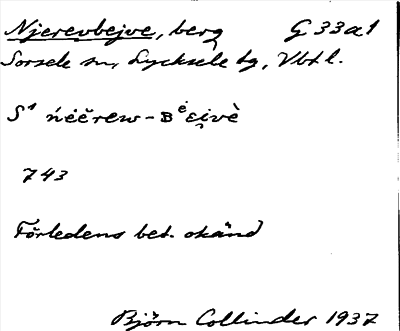 Njerevbejve, berg G 33a1
Sorsele sn, Lycksele tg, Vbt l.
S¹ ńėĕrew-ʙėi̯vè
743
Förledens bet. okänd
Björn Collinder 1937